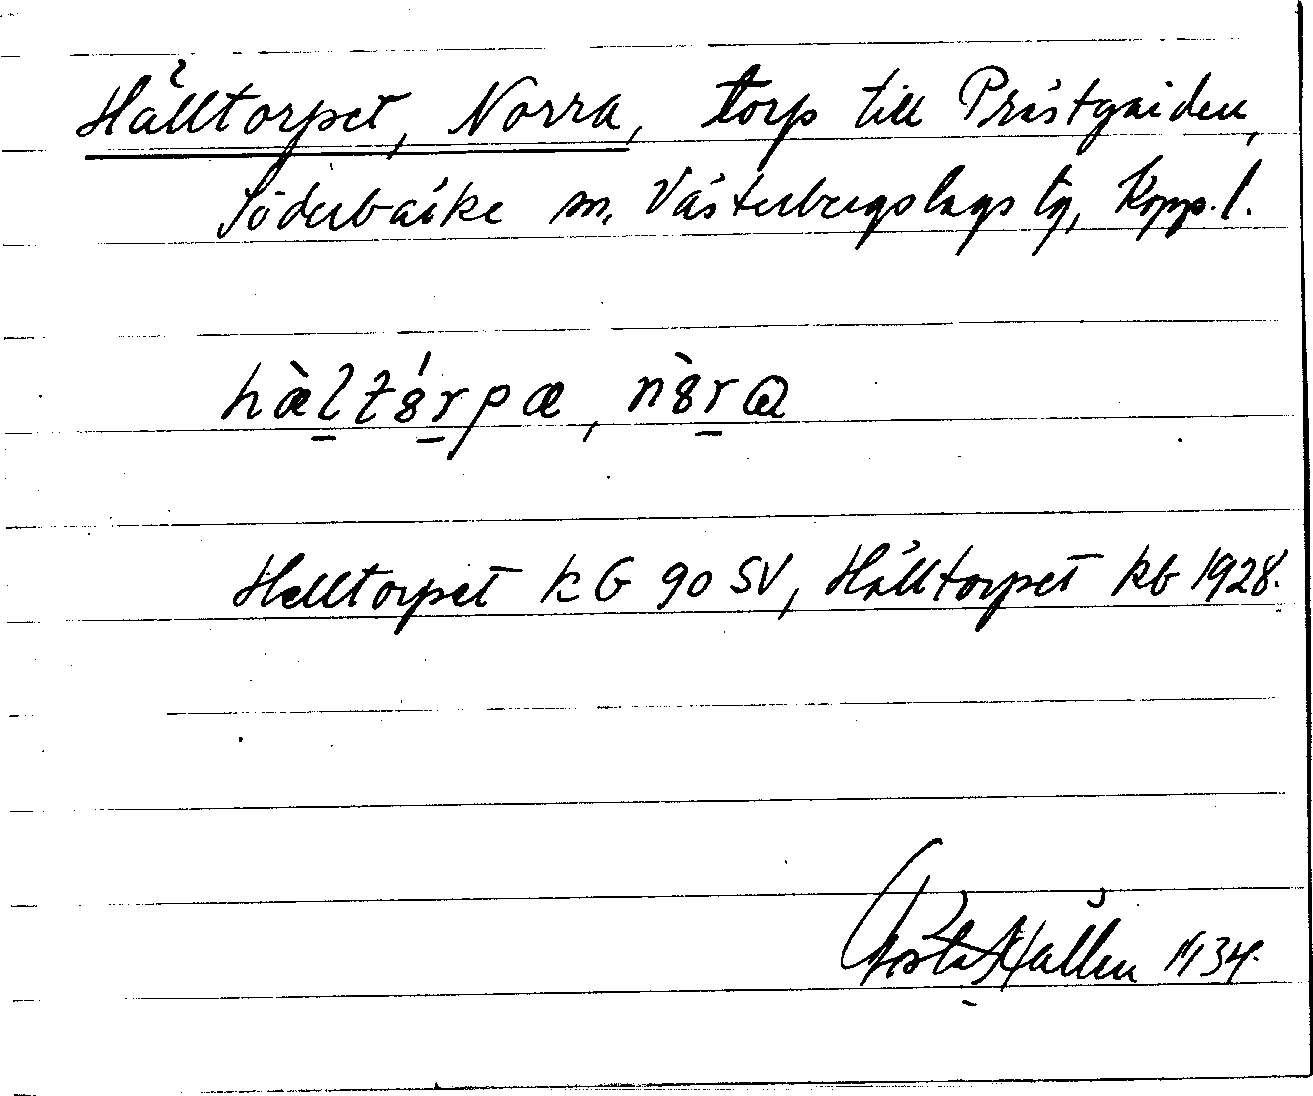 Hälltorpet, Norra, torp till Prästgården,
Söderbärke sn, Västerbergslags tg, Kopp. l.
hæ̀l̠tȣ́r̠pæ, nȣ̀r̠a
Helltorpet KG 90 SV, Hälltorpet kb 1928.
Gösta Hallén 1934.